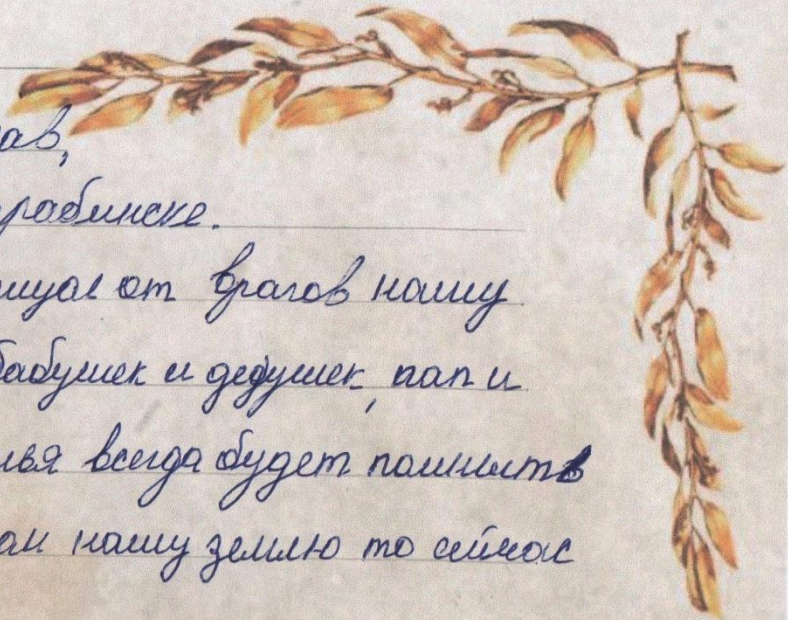 ав,
рабинске.
ищал от врагов нашу
бабушек и дедушек, пап и
мья всегда будет помнить
ам нашу землю то сейчас